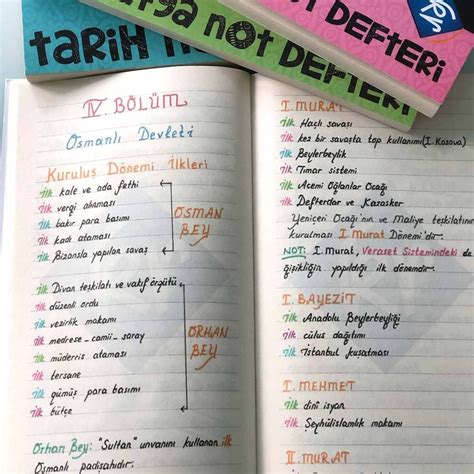 DEFTERİ
NOT DEFTERİ
TARİH
IV. BÖLÜM
Osmanlı Devleti
Kuruluş Dönemi İlkleri
ilk kale ve ada fethi
ilk vergi alınması
ilk bakır para basımı
ilk kadı ataması
ilk Bizansla yapılan savaş
OSMAN
BEY
ilk Divan teşkilatı ve vakıf örgütü
ilk düzenli ordu
ilk vezirlik makamı
ilk medrese-camii-saray
ilk müderris ataması
ilk tersane
ilk gümüş para basımı
ilk bütçe
ORHAN
BEY
Orhan Bey: "Sultan" unvanını kullanan ilk
Osmanlı padişahıdır.
I. MURAT
ilk Haçlı savaşı
ilk kez bir savaşta top kullanımı (I. Kosova)
ilk Beylerbeylik
ilk Tımar sistemi
ilk Acemi Oğlanlar Ocağı
ilk Defterdar ve Kazasker
Yeniçeri Ocağı'nın ve Maliye teşkilatının
kurulması I. Murat Dönemi'dir.
NOT: I. Murat, Veraset Sistemindeki de
ğişikliğin yapıldığı ilk dönemdir.
I. BAYEZİT
ilk Anadolu Beylerbeyliği
ilk cülus dağıtımı
ilk İstanbul kuşatması
I. MEHMET
ilk dinî isyan
ilk Şeyhülislamlık makamı
II. MURAT